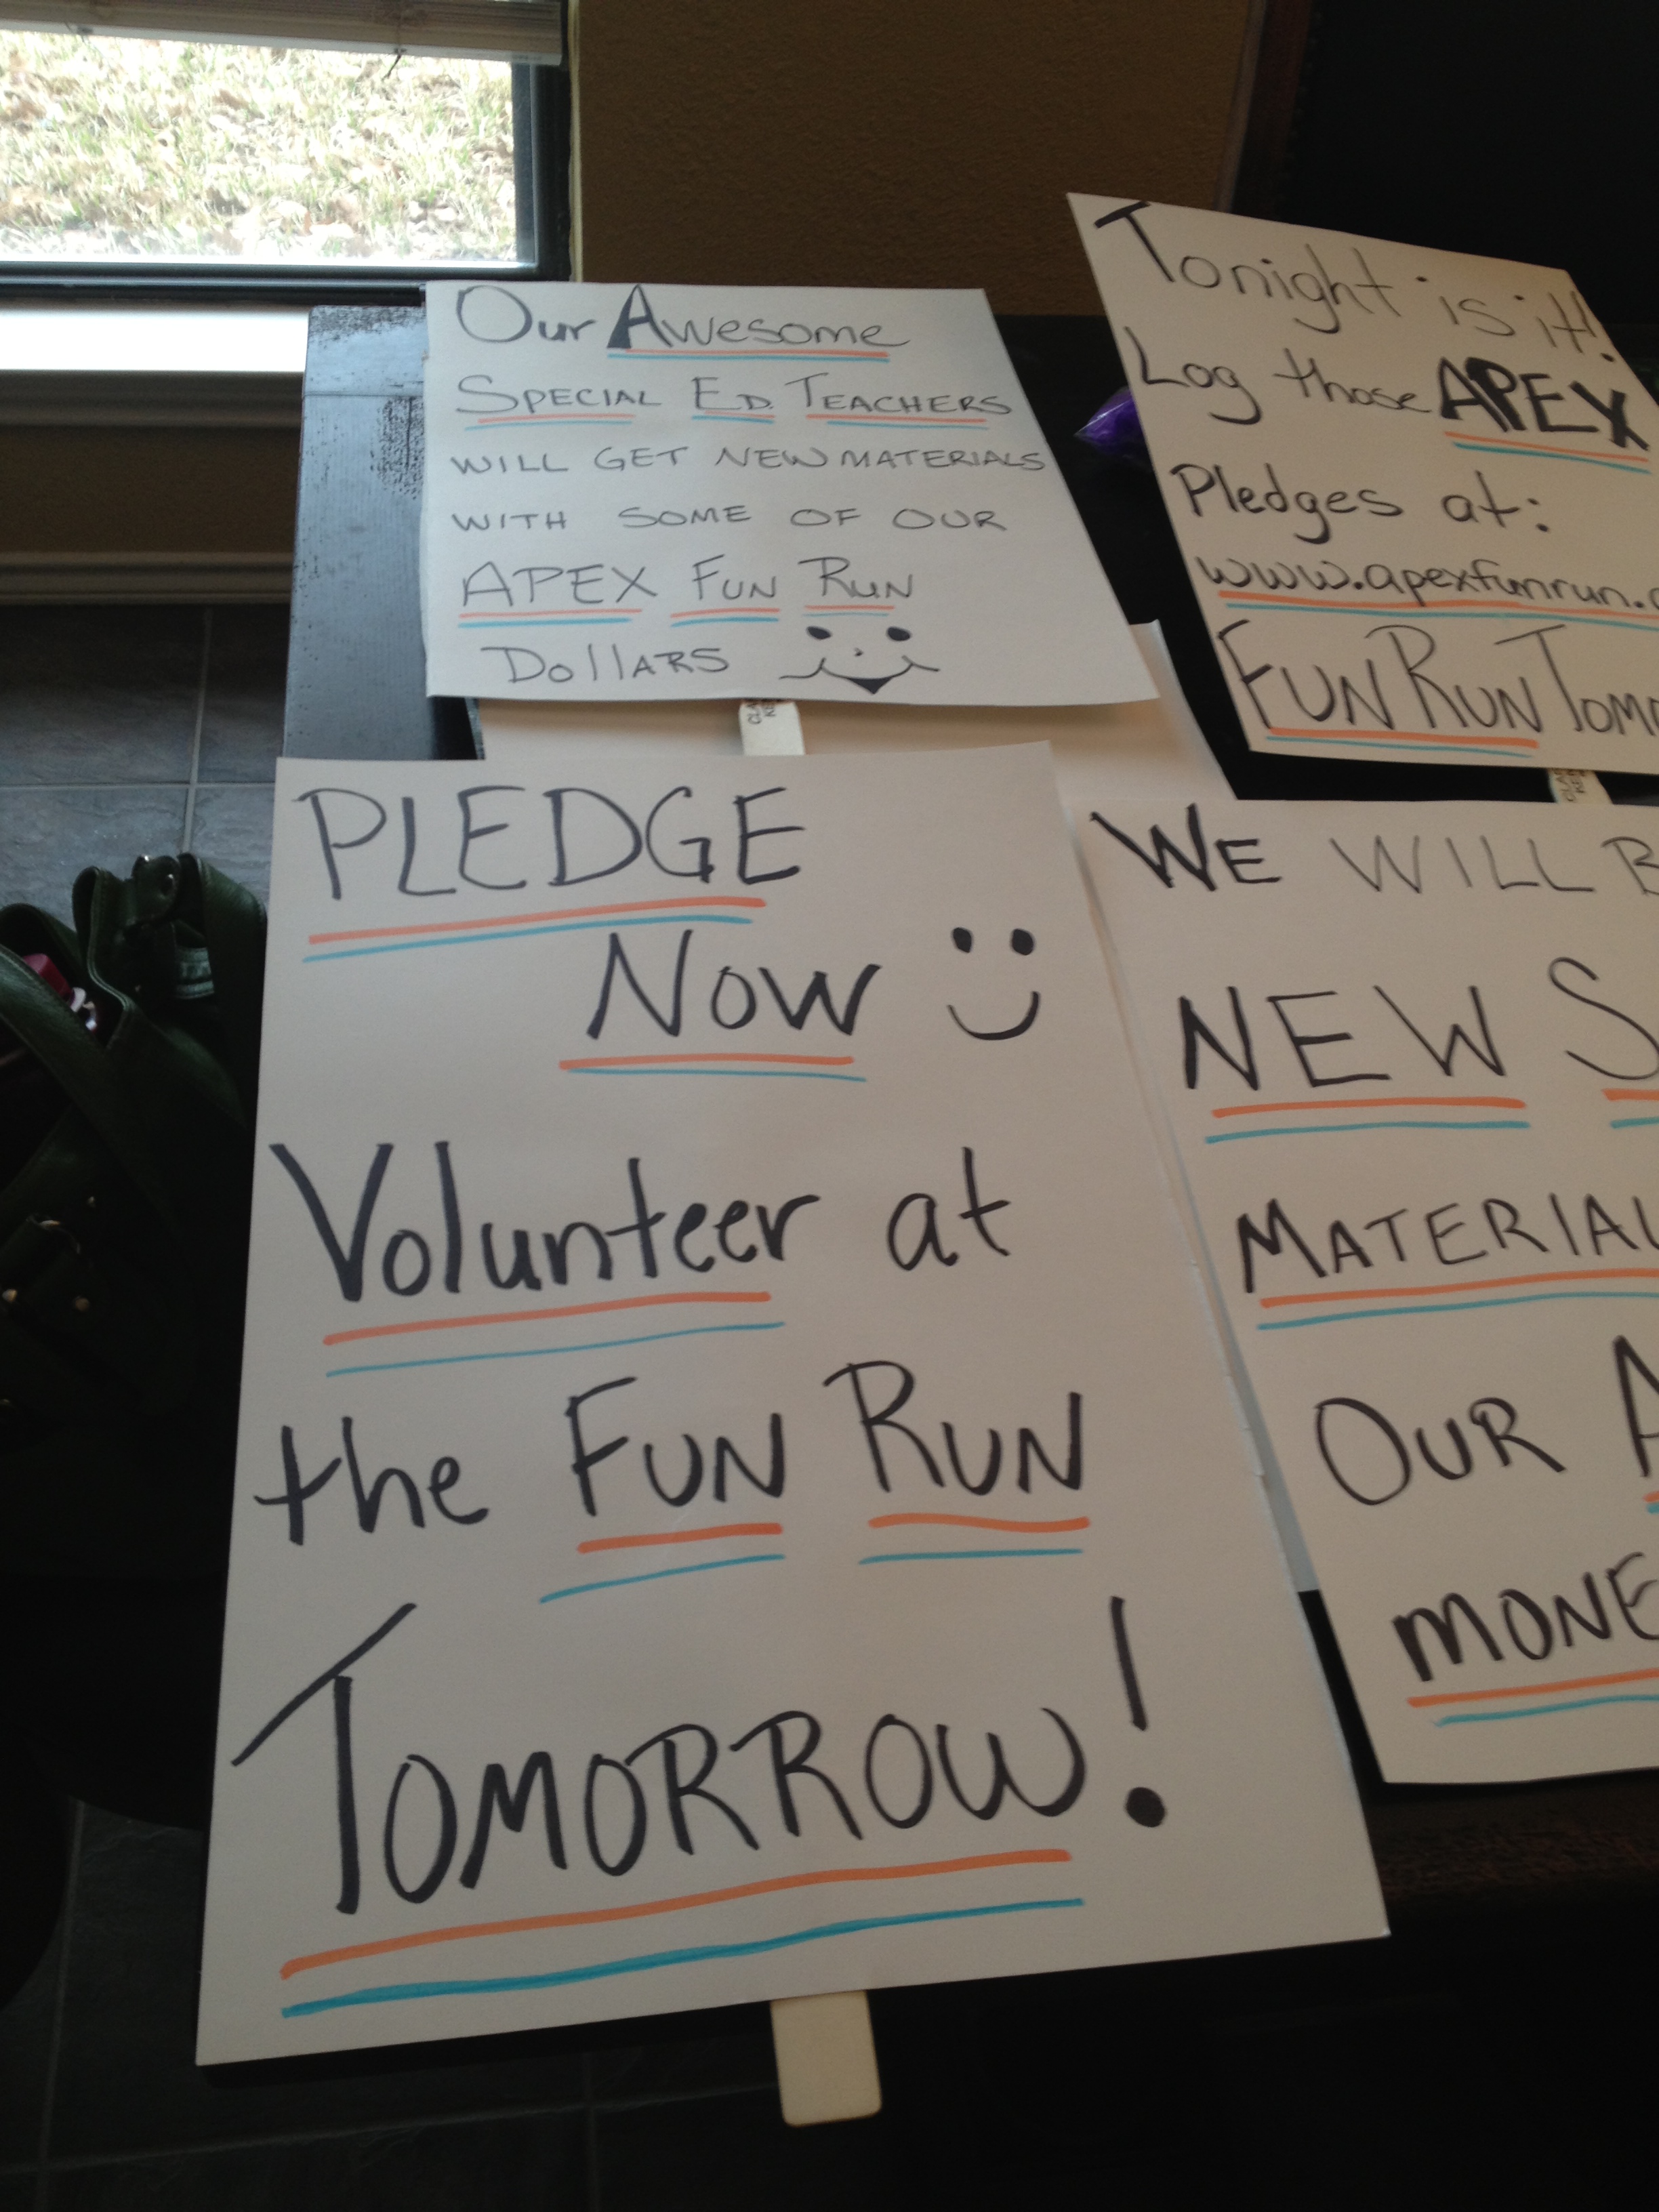 Our Awesome
Special Ed. Teachers
will get new materials
with some of our
APEX Fun Run
Dollars
Tonight is it!
Log those APEX
Pledges at:
www.apexfunrun.
Fun Run Tomo
PLEDGE
Now
Volunteer at
the Fun Run
Tomorrow!
We will B
NEW S
Material
Our A
mone